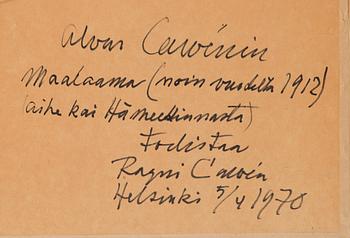 Alvar Cawénin
Maalaama (noin vuodelta 1912)
(aihe kai Hämeenlinnasta)
Todistaa
Ragni Cawén
Helsinki 5/4 1970